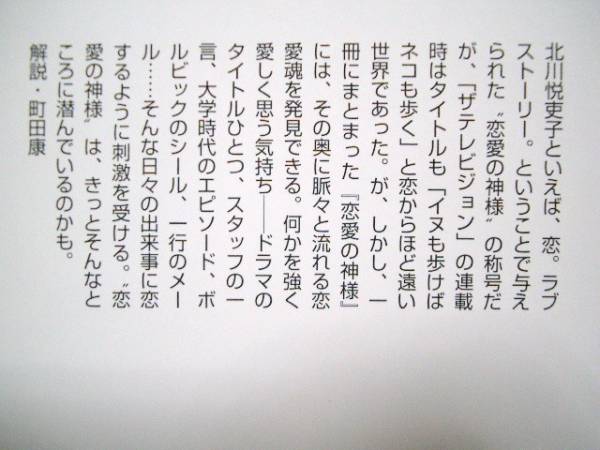 北川悦吏子といえば、恋。ラブ
ストーリー。ということで与え
られた〝恋愛の神様〟の称号だ
が、「ザテレビジョン」の連載
時はタイトルも「イヌも歩けば
ネコも歩く」と恋からほど遠い
世界であった。が、しかし、一
冊にまとまった『恋愛の神様』
には、その奥に脈々と流れる恋
愛魂を発見できる。何かを強く
愛しく思う気持ち――ドラマの
タイトルひとつ、スタッフの一
言、大学時代のエピソード、ボ
ルビックのシール、一行のメー
ル……そんな日々の出来事に恋
するように刺激を受ける。〝恋
愛の神様〟は、きっとそんなと
ころに潜んでいるのかも。
解説・町田康